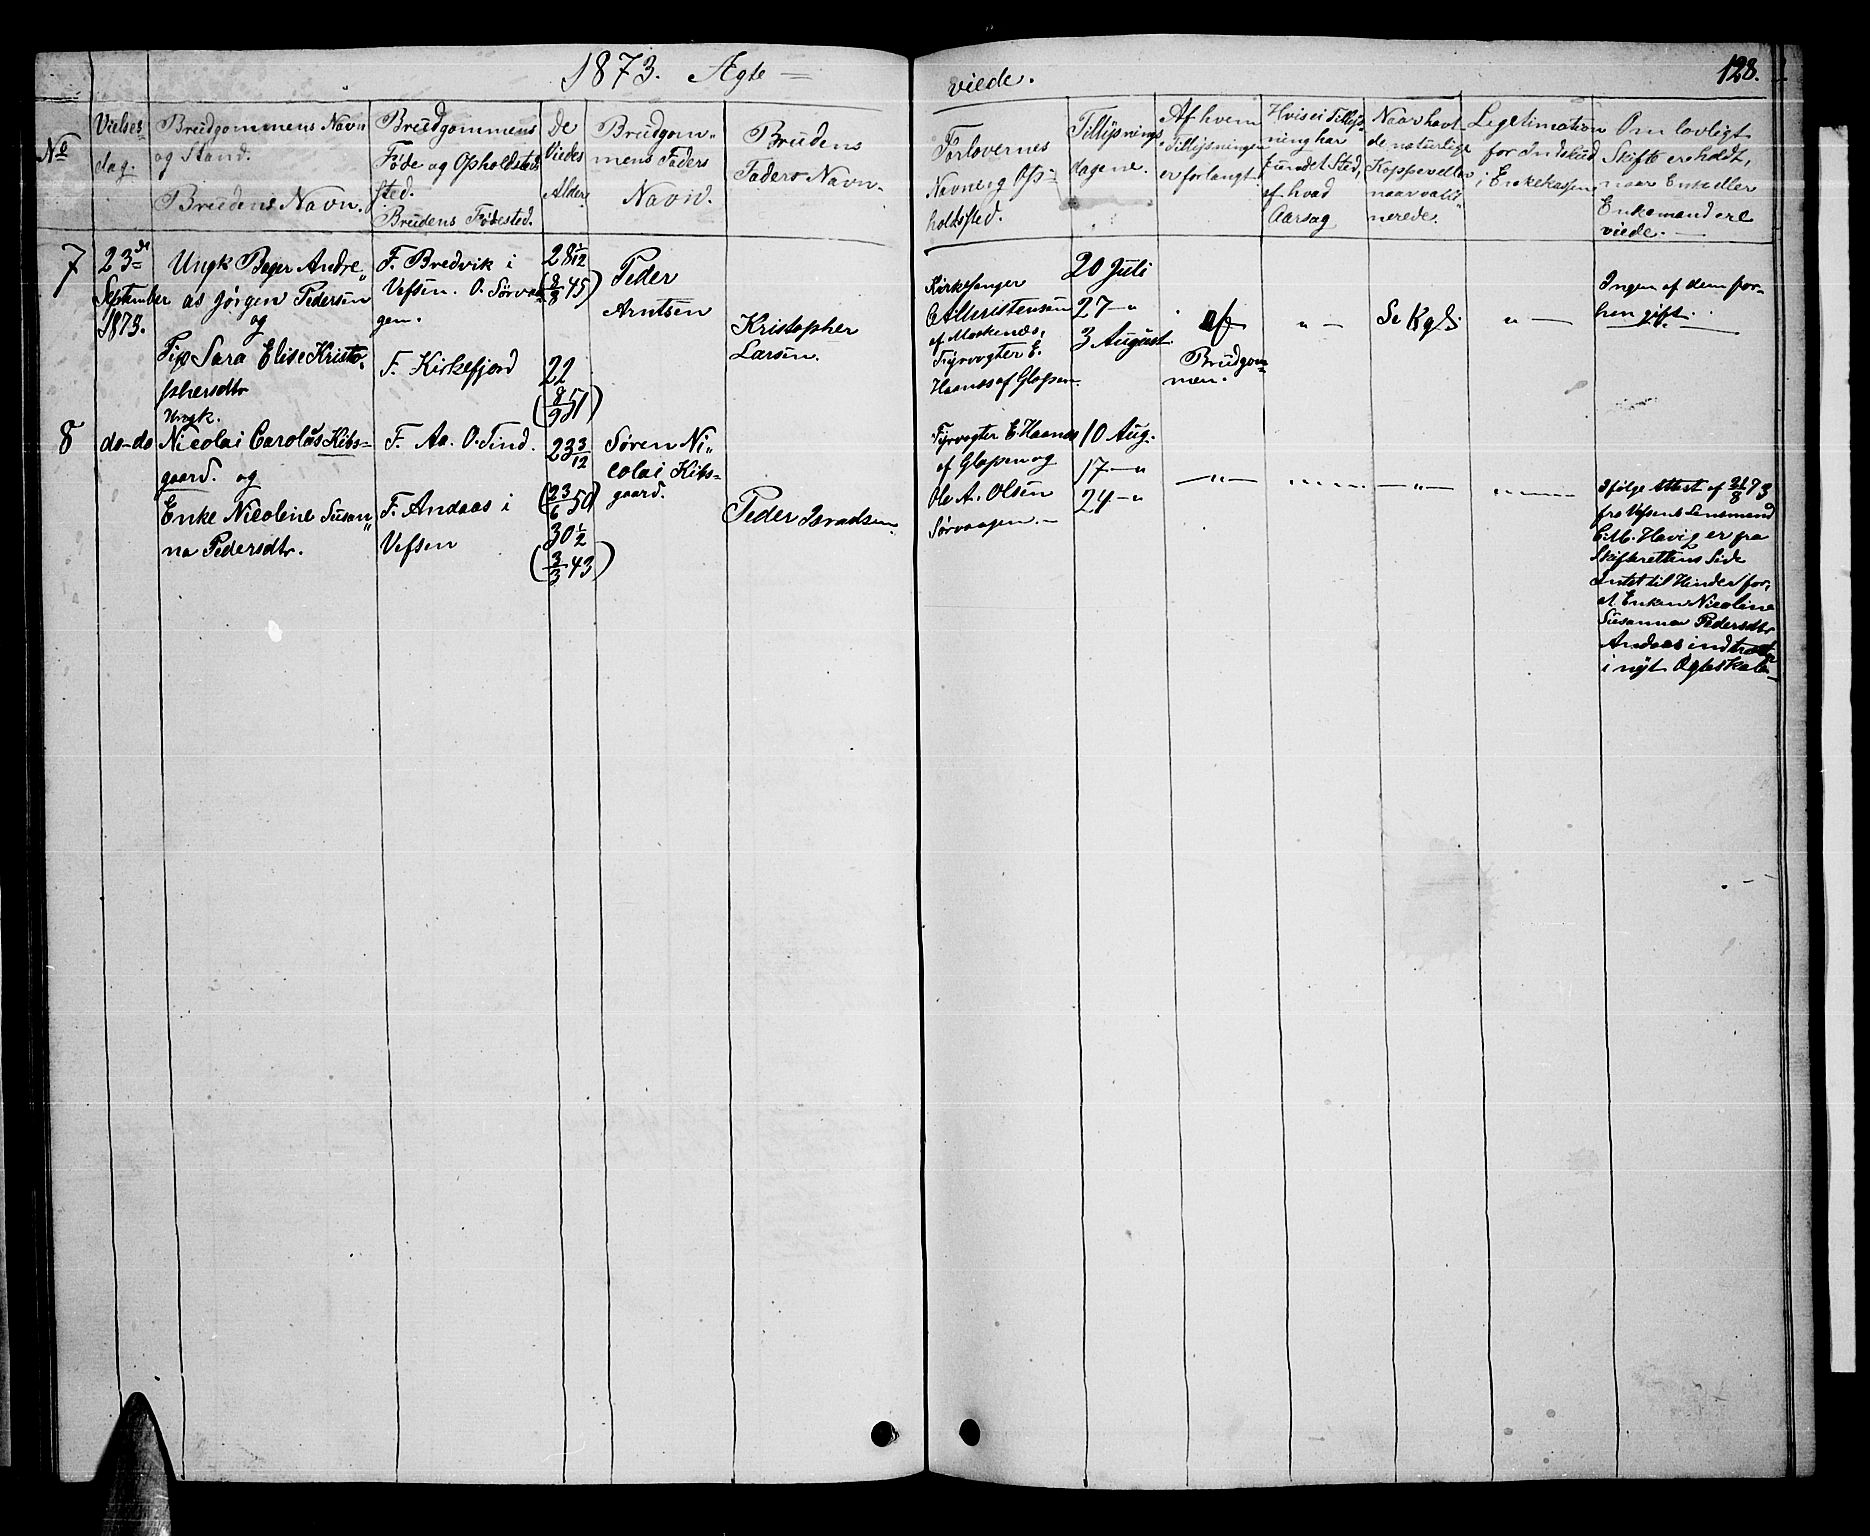 1873. Ægte — viede.
128.
No
Vielses-
dag.
Brudgommens Navn
og Stand.
Brudens Navn.
Brudgommens
Føde og Opholds
sted.
Brudens Fødested.
De
Viedes
Alder.
Brudgom-
mens Faders
Navn.
Brudens
Faders Navn.
Forlovernes
Navn og Op-
holdssted.
Tillysnings
dagene.
Af hvem
Tillysningen
er forlangt.
Hvis ei Tillys-
ning har
fundet Sted,
af hvad
Aarsag
Naar havt
de naturlige
Kopper eller
naar vakci-
nerede.
Legitimation
for Indskud
i Enkekassen
Om lovligt
Skifte er holdt,
naar Enke eller
Enkemand ere
viede. —
7
23de
September
1873.
Ungk Bager Andre-
as Jørgen Pedersen
og
Pige Sara Elise Kristo-
phersdtr
F. Bredvik i
Vefsen. O. Sørvaa-
gen.
F. Kirkefjord
28 1/12
(8/8 45)
22
(8/9 51)
Peder
Arntsen
Kristopher
Larsen.
Kirkesanger
Christensen
af Moskenæs,
Fyrvogter E.
Haanes af Glopen.
20 Juli
27 — "
3 August
af
Brudgom-
men.
" —
Se Kgb
" —
Ingen af dem for-
hen gift.
8
do-do
Ungk.
Nicolai Carolus Kibs-
gaard. og
Enke Nicoline Susan-
na Pedersdtr.
F. Aa. O. Tind.
F. Andaas i
Vefsen
23 3/12
(23/6 50)
30 1/2
(3/3 43)
Søren Ni-
colai Kibs-
gaard.
Peder Israelsen
Fyrvogter E Haanes
af Glopen og
Ole A. Olsen
Sørvaagen. —
10 Aug.
17 — "
24 — "
— " —
— " —
Ifølge Attest af 21/8 73
fra Vefsens Lensmand
C. M. Havig er paa
Skifterettens Side
Intet til Hinder for,
at Enken Nicoline
Susanna Pedersdtr
Andaas indtræder
i nyt Ægteskab —